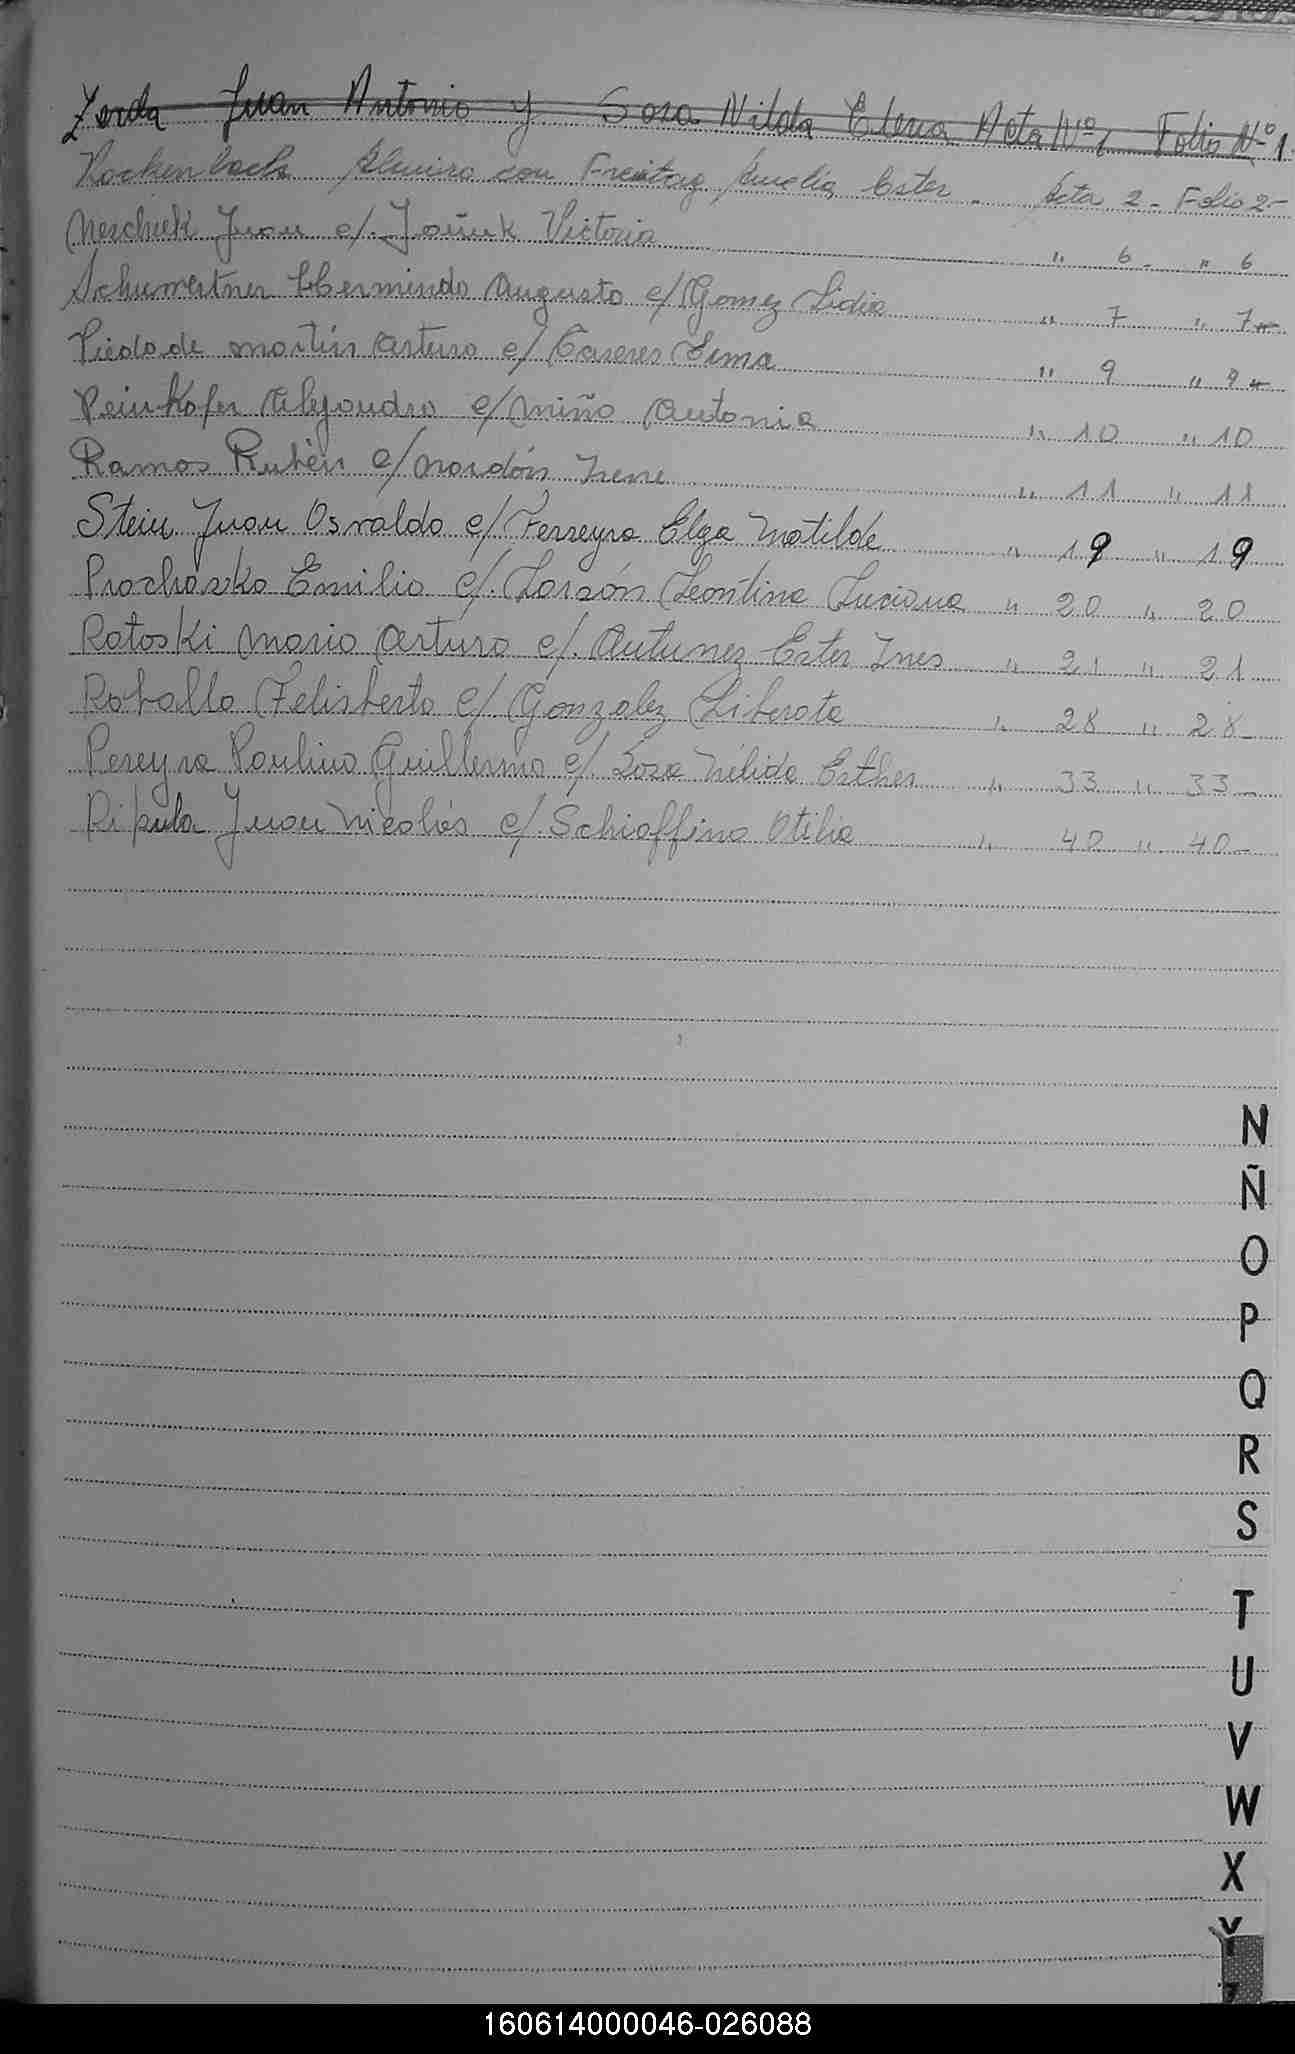 Zerda Juan Antonio y Sosa Nilda Elena Acta Nº 1 Folio Nº 1
Rockenbach Almiro con Freitag Amelia Ester. Acta 2 - Folio 2-
Meschick Juan c/. Victoria " 6 - " 6
Herminda Augusto c/ Gomez Lidia " 7 " 7-
Martín Arturo c/ Caseres Irma " 9 " 9-
Peinkofer Alejandro c/ Miño Antonia " 10 " 10
Ramos Rubén c/ Mardón Irene " 11 " 11
Stein Juan Osvaldo c/ Ferreyra Elga Matilde " 19 " 19
Prochasko Emilio c/. Larsón Leontina Luciana " 20 " 20
Ratoski Mario Arturo c/. Antunez Ester Ines " 21 " 21
Roballo Felisberto c/ Gonzalez Liberata " 28 " 28-
Pereyra Paulino Guillermo c/ Sosa Nélida Esther " 33 " 33-
Ripula Juan Nicolás c/. Schiaffino Otilia " 40 " 40-
N
Ñ
O
P
Q
R
S
T
U
V
W
X
Y
Z
160614000046-026088